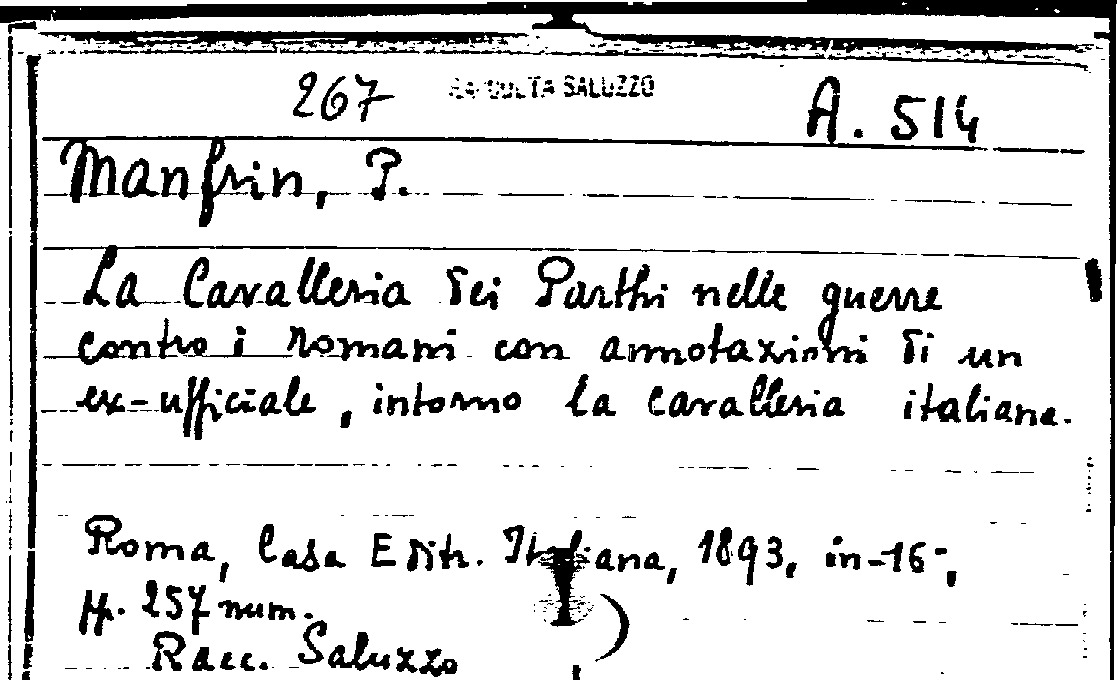 267 RACCOLTA SALUZZO A. 514
Manfrin, P.
La Cavalleria dei Parthi nelle guerre
contro i Romani con annotazioni di un
ex-ufficiale, intorno la cavalleria italiana.
Roma, Casa Editr. Italiana, 1893, in-16°,
pp. 257 num.
Racc. Saluzzo